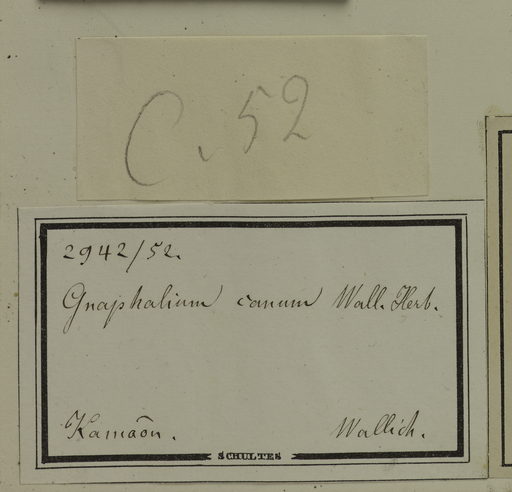 C. 52
2942/52.
Gnaphalium canum Wall. Herb.
Kamaôn. Wallich.
SCHULTES